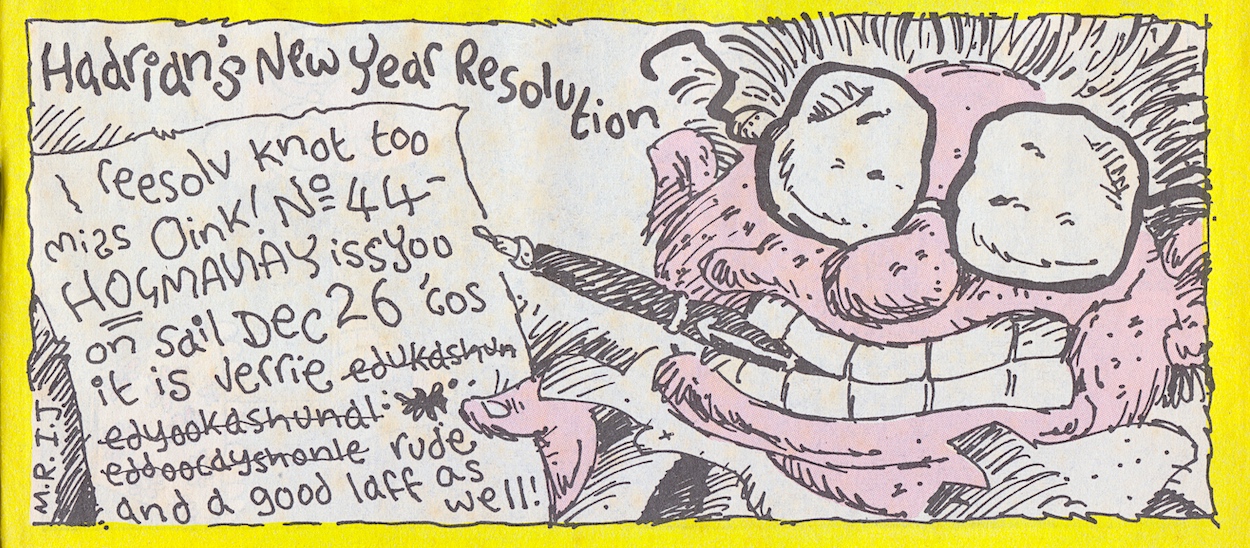 Hadrian's New Year Resolution
I reesolv knot too
miss Oink! Nº 44-
HOGMANAY issyou
on sail Dec 26 'cos
it is verrie edukashun
edyookashunal
eddoocayshonle rude
and a good laff as
well!
M.R.I.J